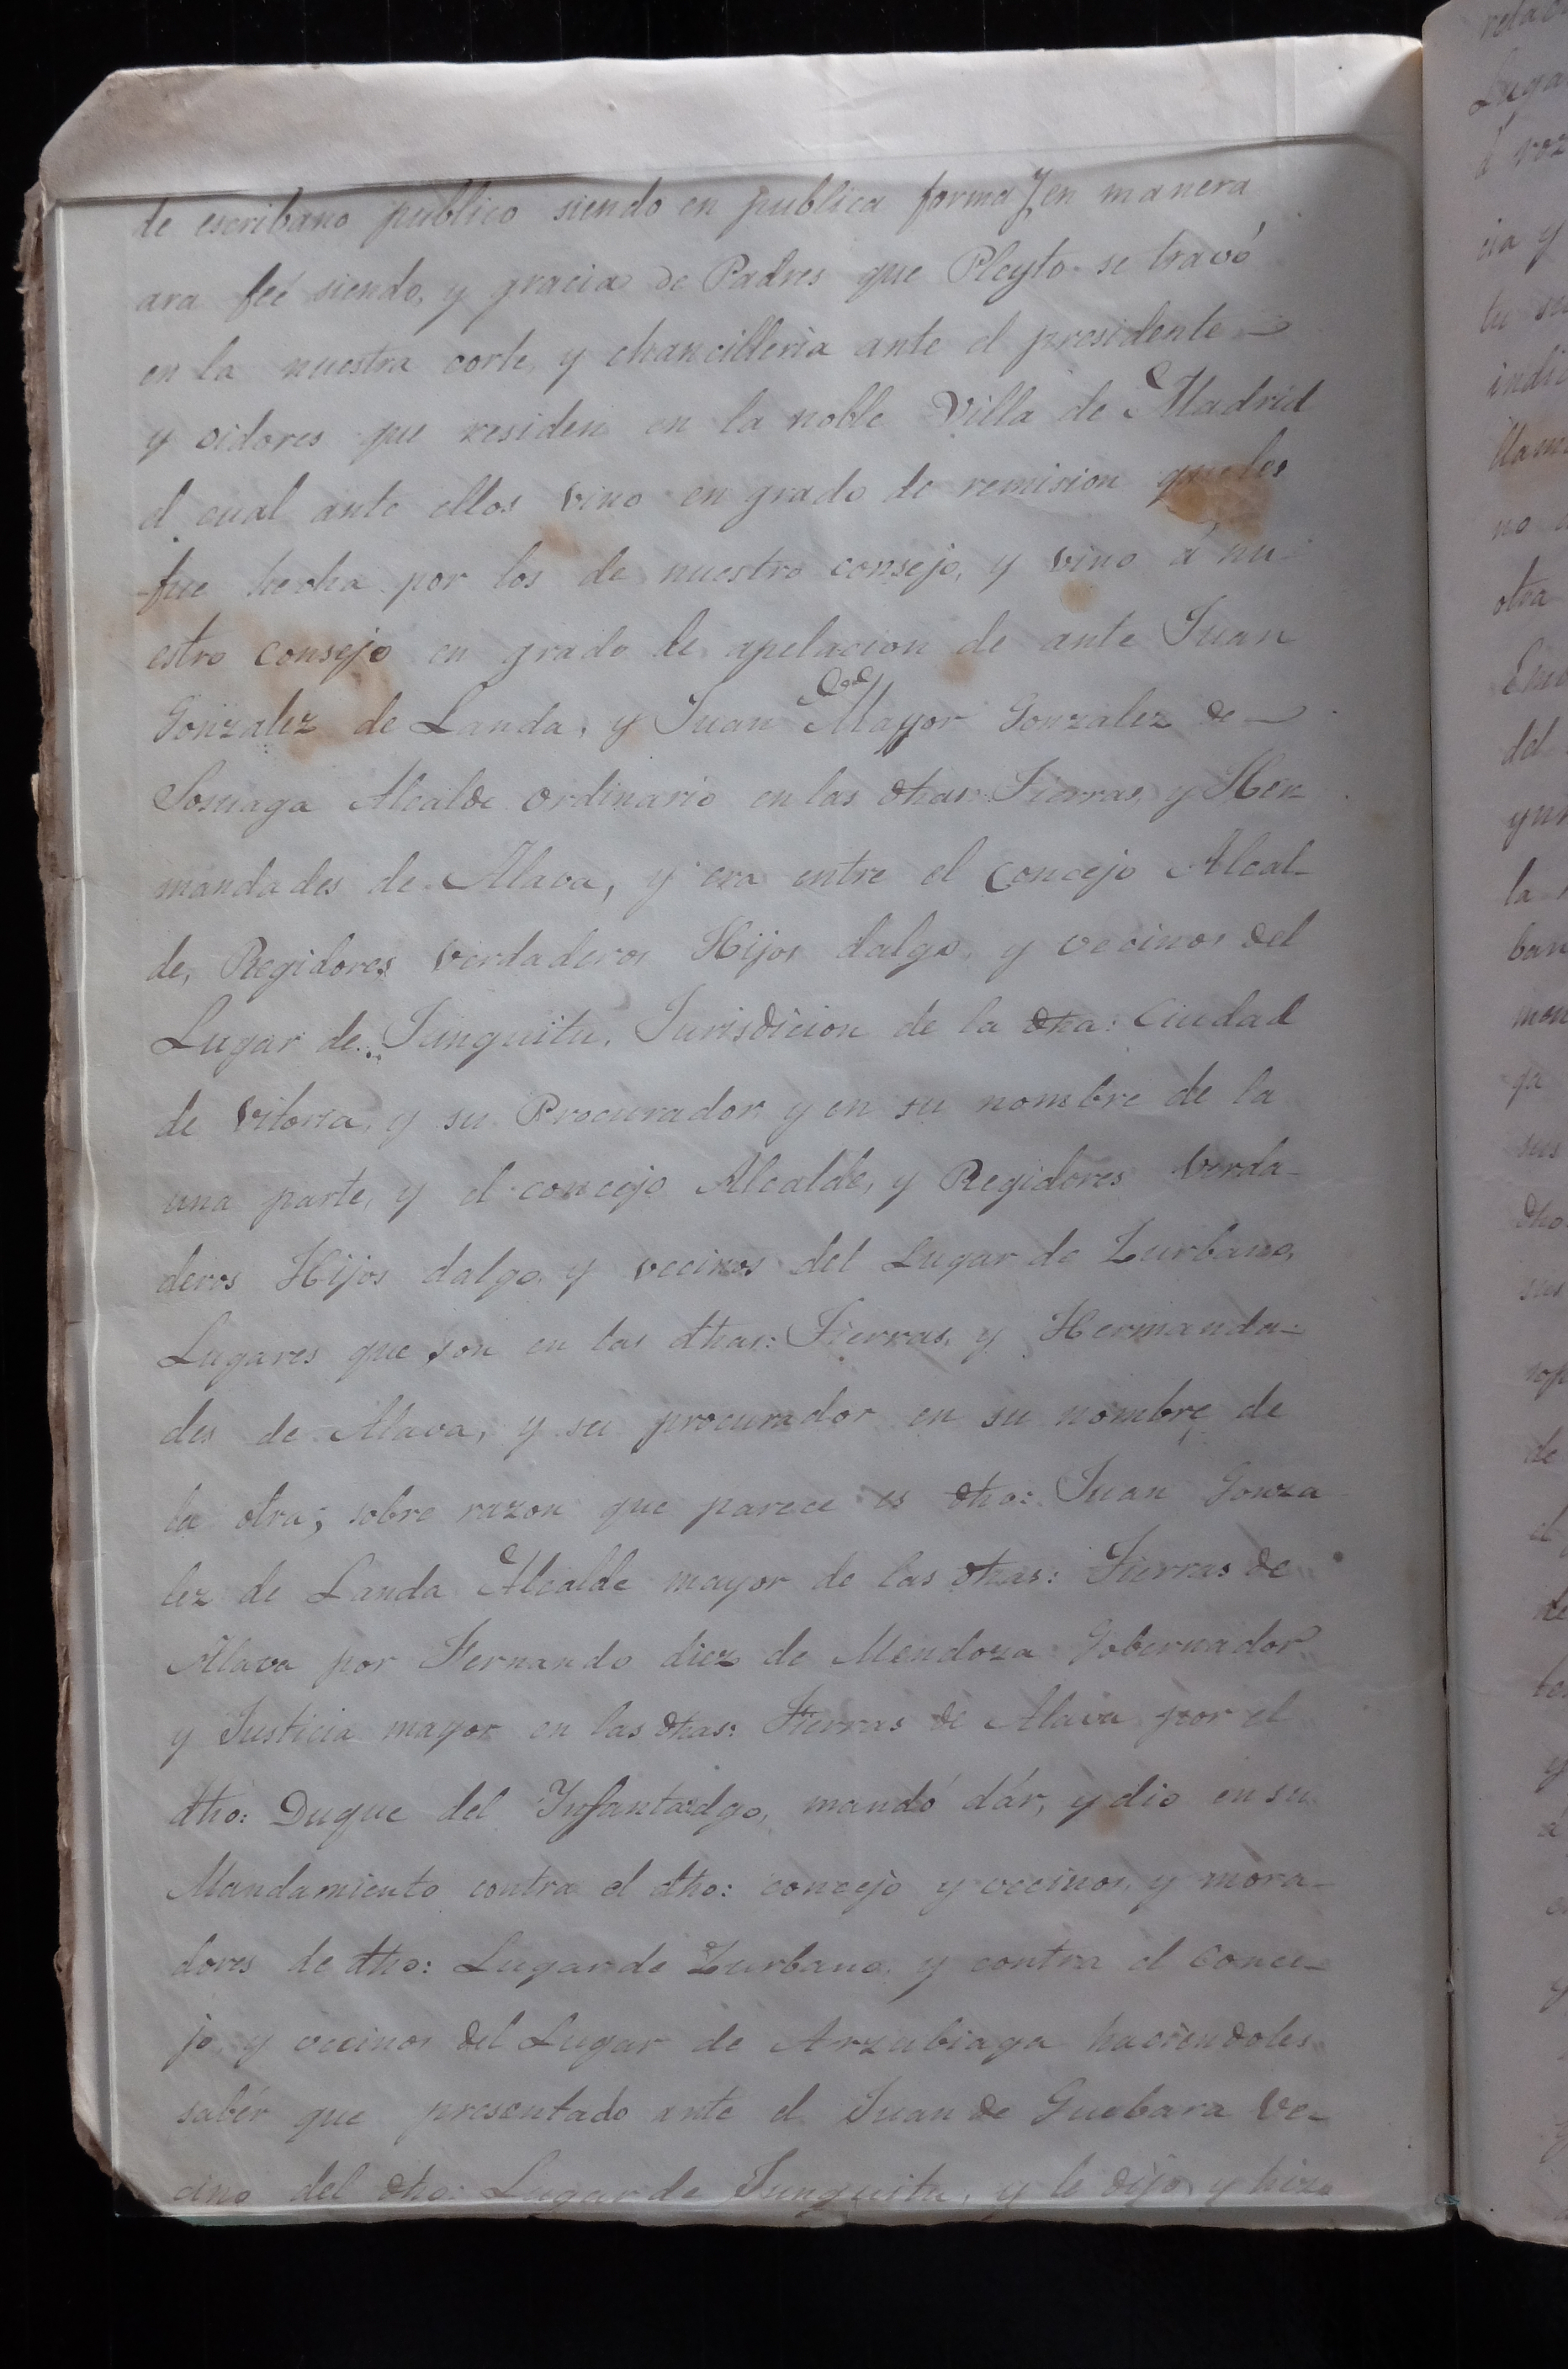 de escribano publico siendo en publica forma y en manera
ara feé siendo, y gracias de Padres que Pleyto se travó
en la nuestra corte, y chancilleria ante el presidente
y oidores que residen en la noble Villa de Madrid
el cual ante ellos vino en grado de remision que les
fue hecha por los de nuestro consejo, y vino á nu-
estro consejo en grado de apelacion de ante Juan
Gonzalez de Landa, y Juan Mayor Gonzalez de
Alcalde ordinario en las dhas: Tierras, y Her-
mandades de Alava, y era entre el Concejo Alcal-
de, Regidores verdaderos Hijos dalgo, y vecinos del
Lugar de Junguitu, Jurisdicion de la dha: Ciudad
de Vitoria, y su Procurador y en su nombre de la
una parte, y el concejo Alcalde, y Regidores verda-
deros Hijos dalgo, y vecinos del Lugar de Zurbano,
Lugares que son en las dhas: Tierras, y Hermanda-
des de Alava, y su procurador en su nombre de
la otra; sobre razon que parece es dho: Juan Gonza
lez de Landa Alcalde mayor de las dhas: Tierras de
Alava por Fernando diez de Mendoza Gobernador
y Justicia mayor en las dhas: Tierras de Alava por el
dho: Duque del Infantadgo, mandó dár, y dio en su
Mandamiento contra el dho: concejo y vecinos, y mora-
dores de dho: Lugar de Zurbano, y contra el Conce-
jo, y vecinos del Lugar de Arzubiaga haciendoles
sabér que presentado ante el Juan de Guebara ve-
cino del dho: Lugar de Junguitu, y le dijo, y hizo
relac
Luga
á voz
cia y
indic
otra
del
la
ban
de
el
de
y